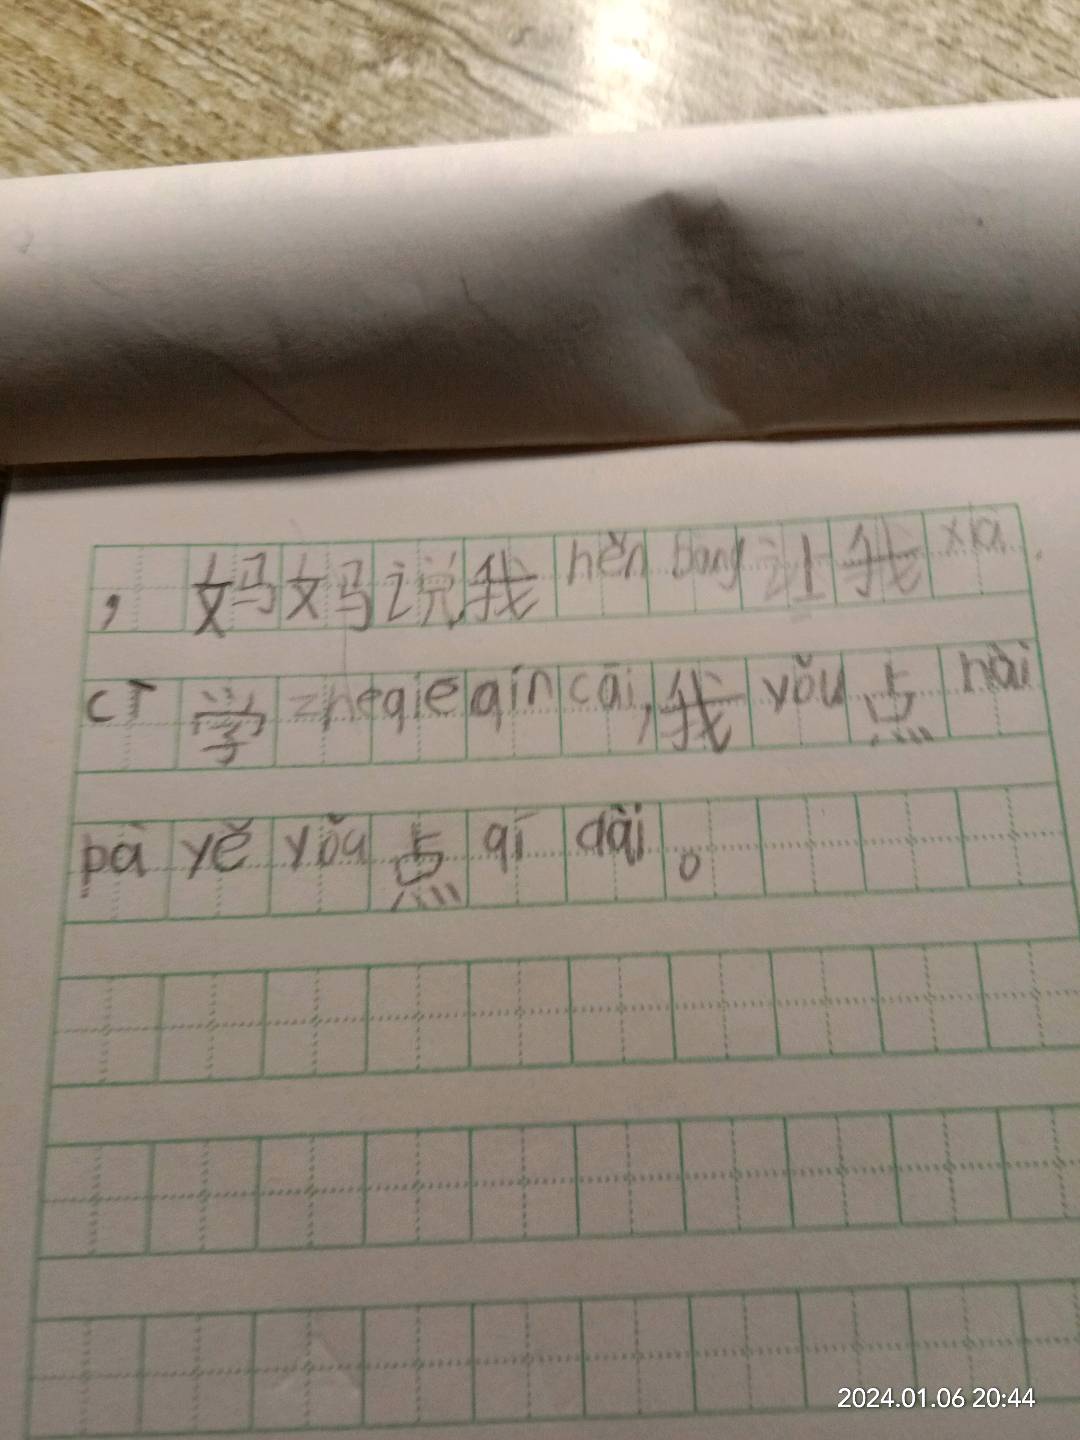 ，妈妈说我hěn bang让我xià
cī学zhe qiē qín cāi,我yǒu点hài
pà yě yǒu点qī dài。
2024.01.06 20:44